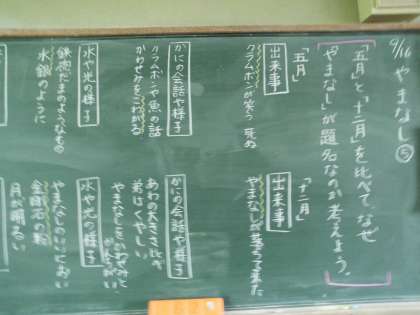 9/16 やまなし⑤
「五月」と「十二月」を比べて、なぜ
「やまなし」が題名なのか考えよう。
「五月」
出来事
クラムボンが笑う 死ぬ
かにの会話や様子
クラムボンや魚の話
かわせみをこわがる
水や光の様子
鉄砲だまのようなもの
水銀のように
「十二月」
出来事
やまなしが落ちてきた
かにの会話や様子
あわの大きさ比べ
弟はくやしい
やまなしを
水や光の様子
やまなしのいいにおい
金剛石の粉
月が明るい